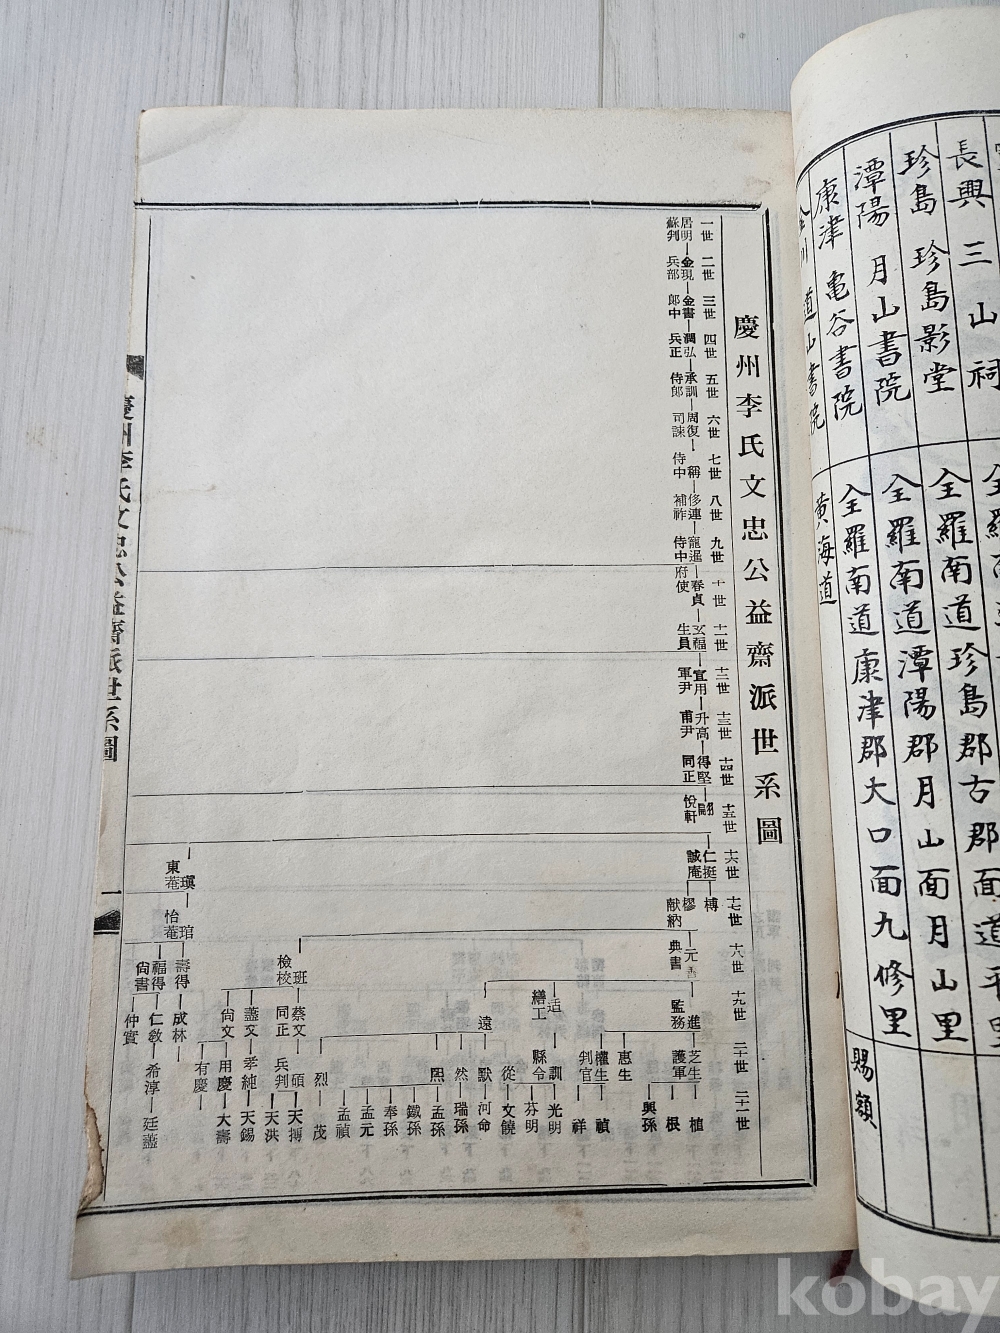 慶州李氏文忠公益齋派世系圖
一世 二世 三世 四世 五世 六世 七世 八世 九世 十世 十一世 十二世 十三世 十四世 十五世 十六世 十七世 十八世 十九世 二十世 二十一世
居明 金現 金書 潤弘 承訓 周復 稱 侈連 寵暹 春貞 玄福 宣用 升高 得堅 翮 仁挺 榑
蘇判 兵部 郎中 兵正 侍郎 司諫 侍中 補祚 侍中 府使 生員 軍尹 甫尹 同正 悅軒 誠庵 樛
献納 元普
典書
進 芝生 植
監務 護軍 根
興孫
惠生
權生 禎
判官 祥
适 訓 光明
繕工 縣令 芬明
遠 從 文饒
默 河命
然 瑞孫
熙 孟孫
鐵孫
奉孫
孟元
孟禎
班 蔡文 碩 天搏
檢校 同正 兵判 天洪
烈 茂
蓋文 孝純 天錫
尙文 用慶 大壽
有慶
瑱 琯 壽得 成林
東菴 怡菴 福得 仁敎 希淳 廷蓋
尙書 仲實
慶州李氏文忠公益齋派世系圖
一
長興 三山祠
珍島 珍島影堂 全羅南道珍島郡古郡面道平里
潭陽 月山書院 全羅南道潭陽郡月山面月山里
康津 亀谷書院 全羅南道康津郡大口面九修里
道山書院 黃海道
賜額
kobay